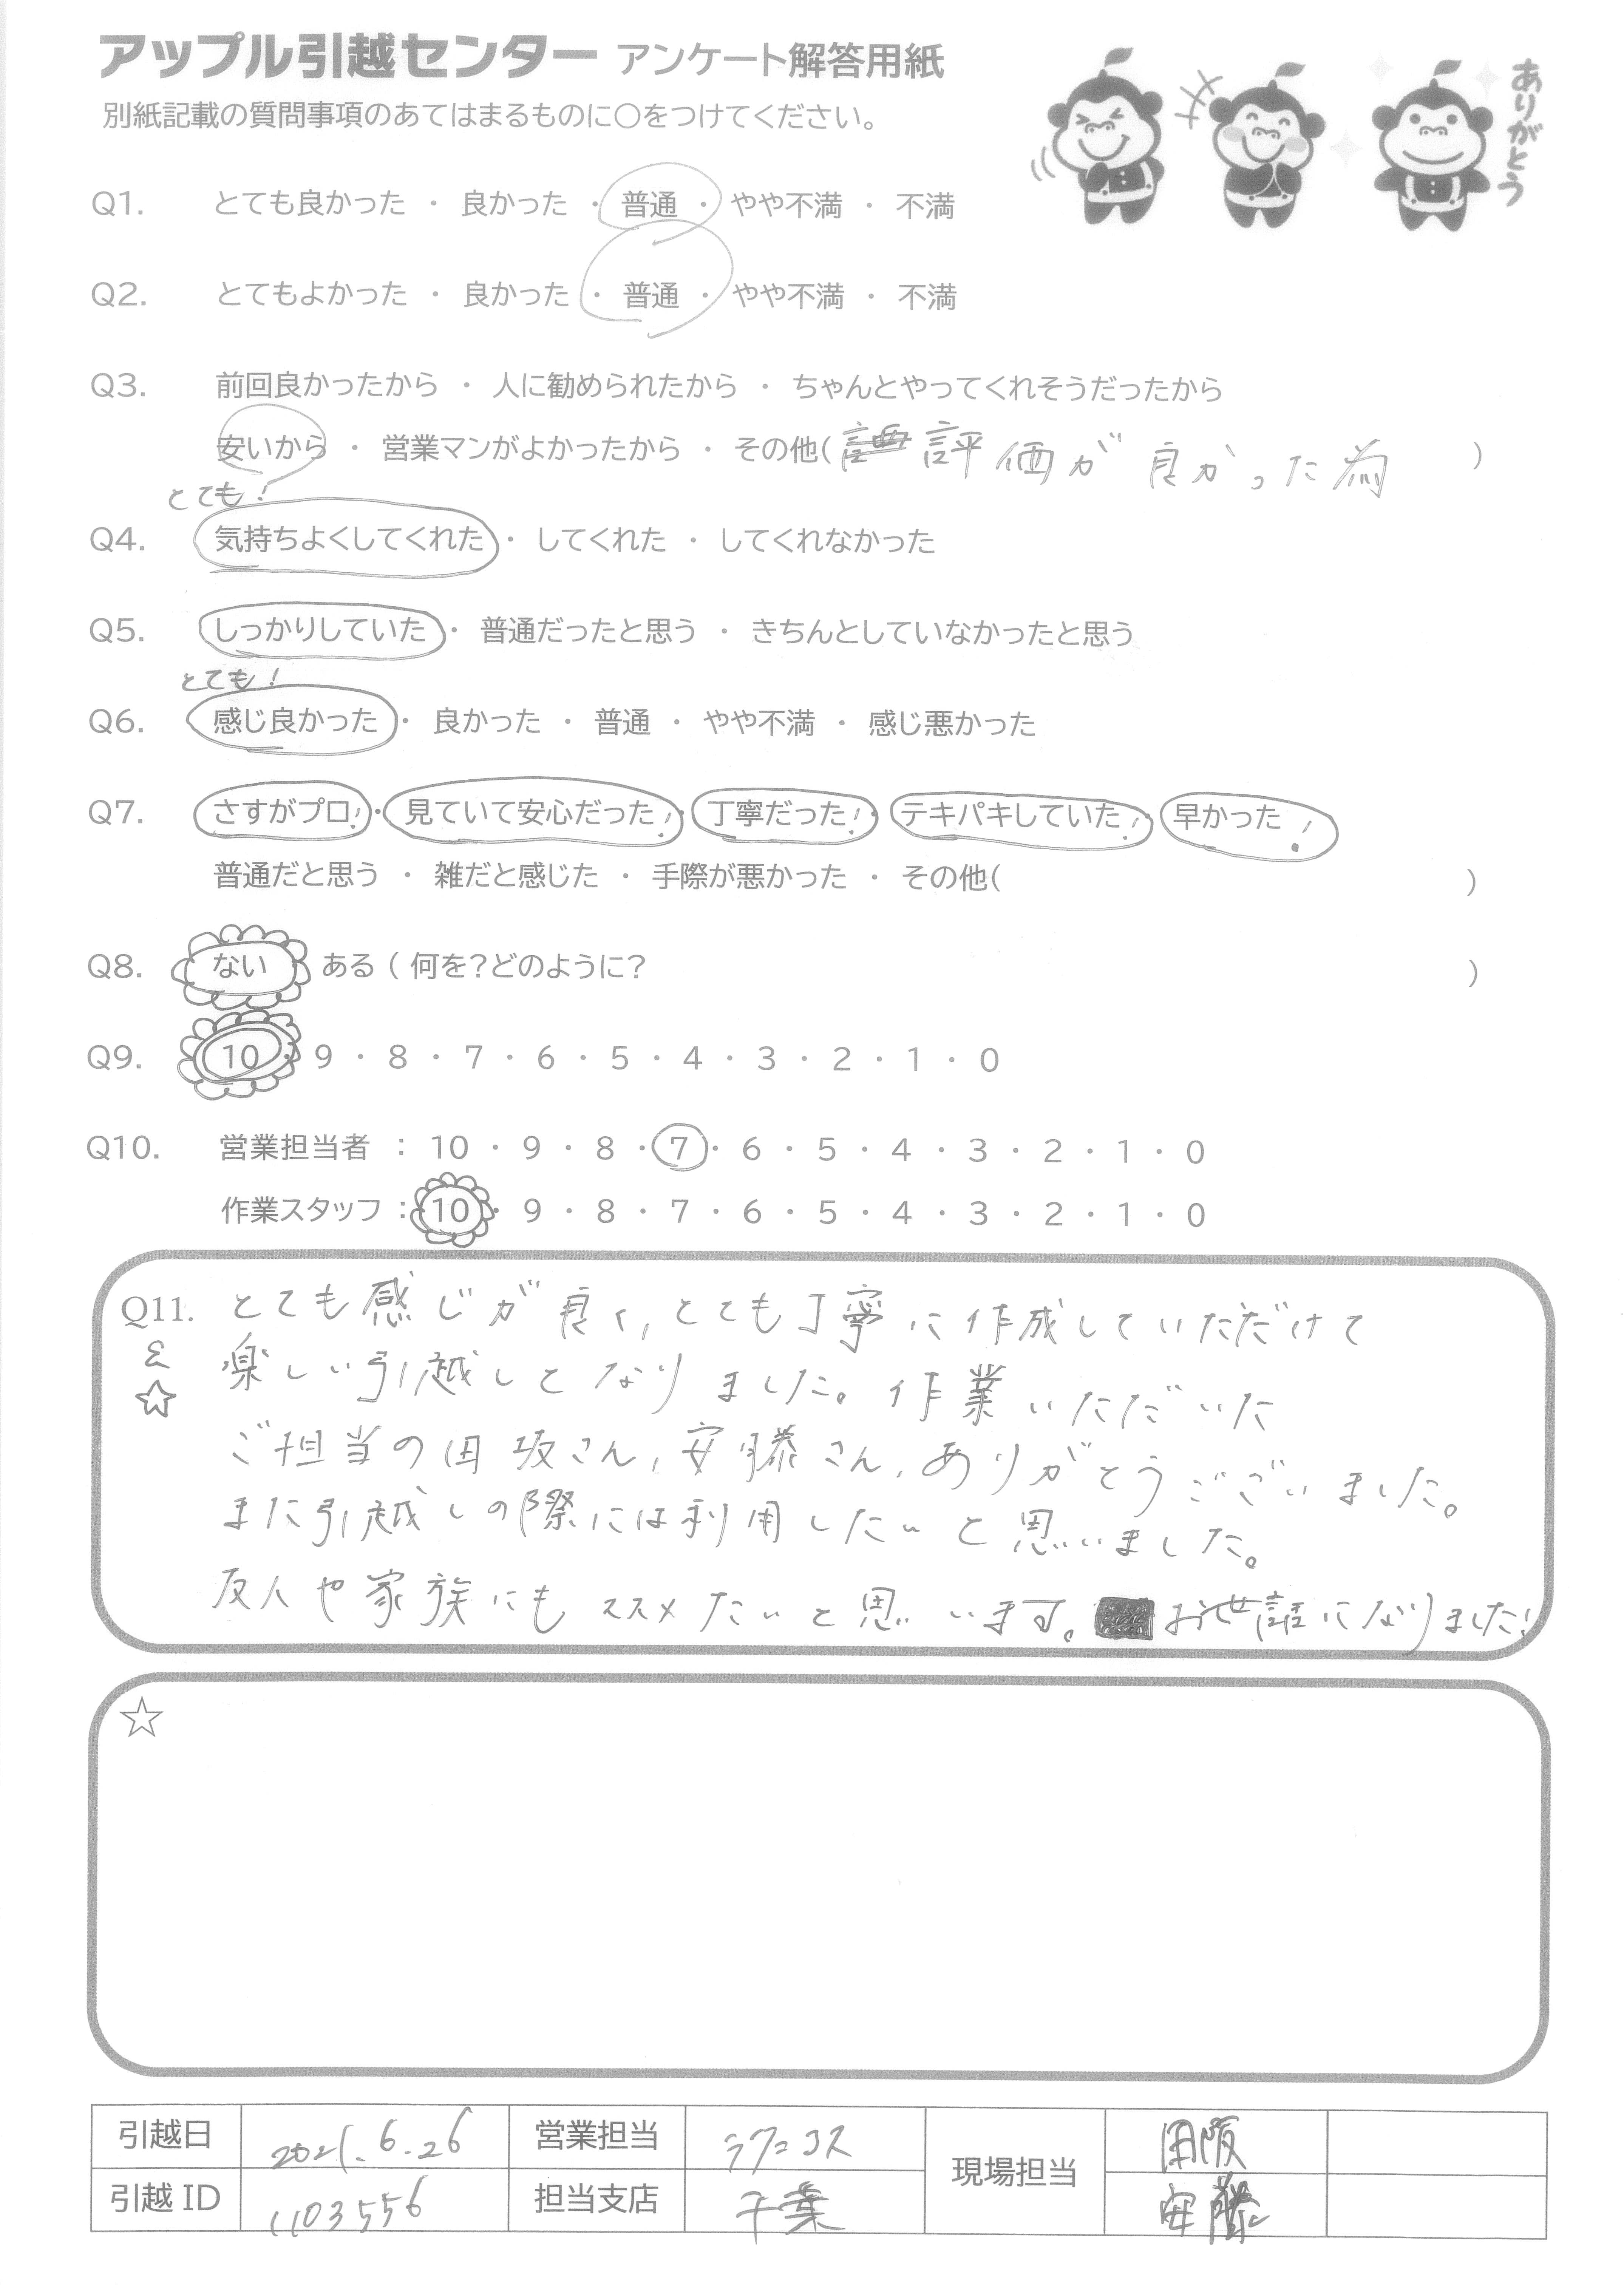 アップル引越センター アンケート解答用紙
ありがとう
別紙記載の質問事項のあてはまるものに○をつけてください。
Q1. とても良かった ・ 良かった ・ 普通 ・ やや不満 ・ 不満
Q2. とてもよかった ・ 良かった ・ 普通 ・ やや不満 ・ 不満
Q3. 前回良かったから ・ 人に勧められたから ・ ちゃんとやってくれそうだったから
安いから ・ 営業マンがよかったから ・ その他( 評価が良かった為 )
とても!
Q4. 気持ちよくしてくれた ・ してくれた ・ してくれなかった
Q5. しっかりしていた ・ 普通だったと思う ・ きちんとしていなかったと思う
とても!
Q6. 感じ良かった ・ 良かった ・ 普通 ・ やや不満 ・ 感じ悪かった
Q7. さすがプロ! ・ 見ていて安心だった! ・ 丁寧だった! ・ テキパキしていた! ・ 早かった!
普通だと思う ・ 雑だと感じた ・ 手際が悪かった ・ その他( )
Q8. ない ある ( 何を?どのように? )
Q9. 10 ・ 9 ・ 8 ・ 7 ・ 6 ・ 5 ・ 4 ・ 3 ・ 2 ・ 1 ・ 0
Q10. 営業担当者 : 10 ・ 9 ・ 8 ・ 7 ・ 6 ・ 5 ・ 4 ・ 3 ・ 2 ・ 1 ・ 0
作業スタッフ : 10 ・ 9 ・ 8 ・ 7 ・ 6 ・ 5 ・ 4 ・ 3 ・ 2 ・ 1 ・ 0
Q11. とても感じが良く,とても丁寧に作成していただけて
& ☆ 楽しい引越しとなりました。作業いただいた
ご担当の田坂さん,安藤さん,ありがとうございました。
また引越しの際には利用したいと思いました。
友人や家族にもススメたいと思います。 お世話になりました!
☆
引越日 2021.6.26 営業担当 現場担当 田阪
引越ID 1103556 担当支店 千葉 安藤